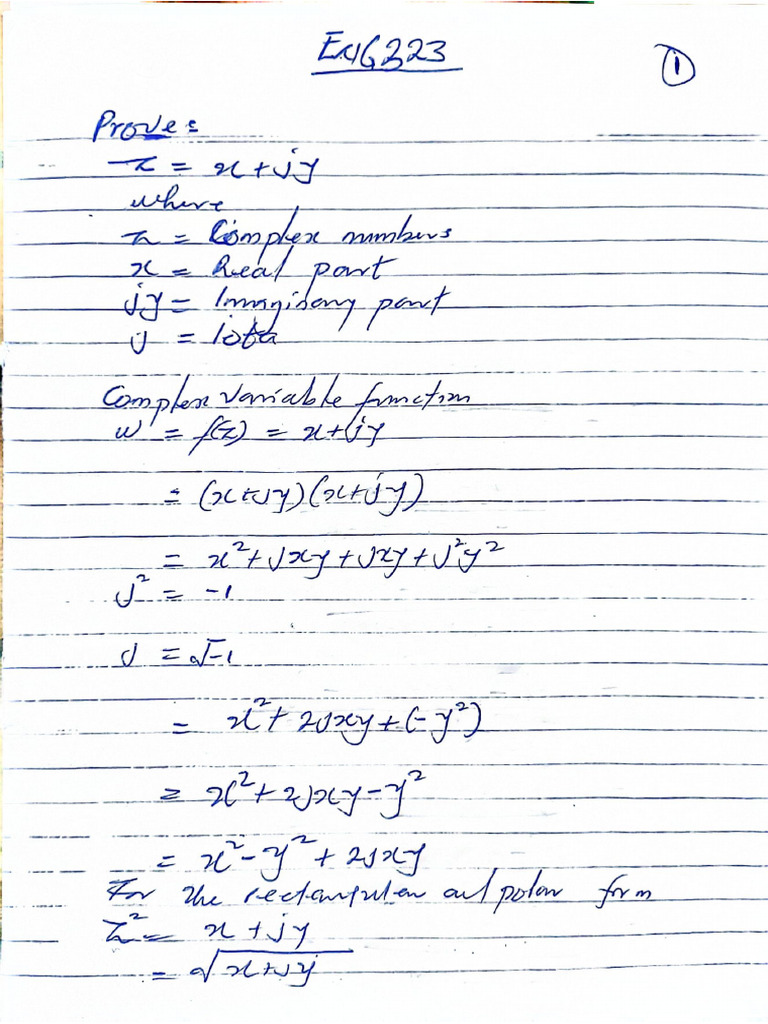 ENG223
1
Prove:
z = x + jy
where
z = Complex numbers
x = Real part
jy = Imaginary part
j = iota
Complex variable function
w = f(z) = x + jy
= (x+jy)(x+jy)
= x² + jxy + jxy + j²y²
j² = -1
j = √-1
= x² + 2jxy + (-y²)
= x² + 2jxy - y²
= x² - y² + 2jxy
For the rectangular and polar form
z² = x + jy
= √x+jy